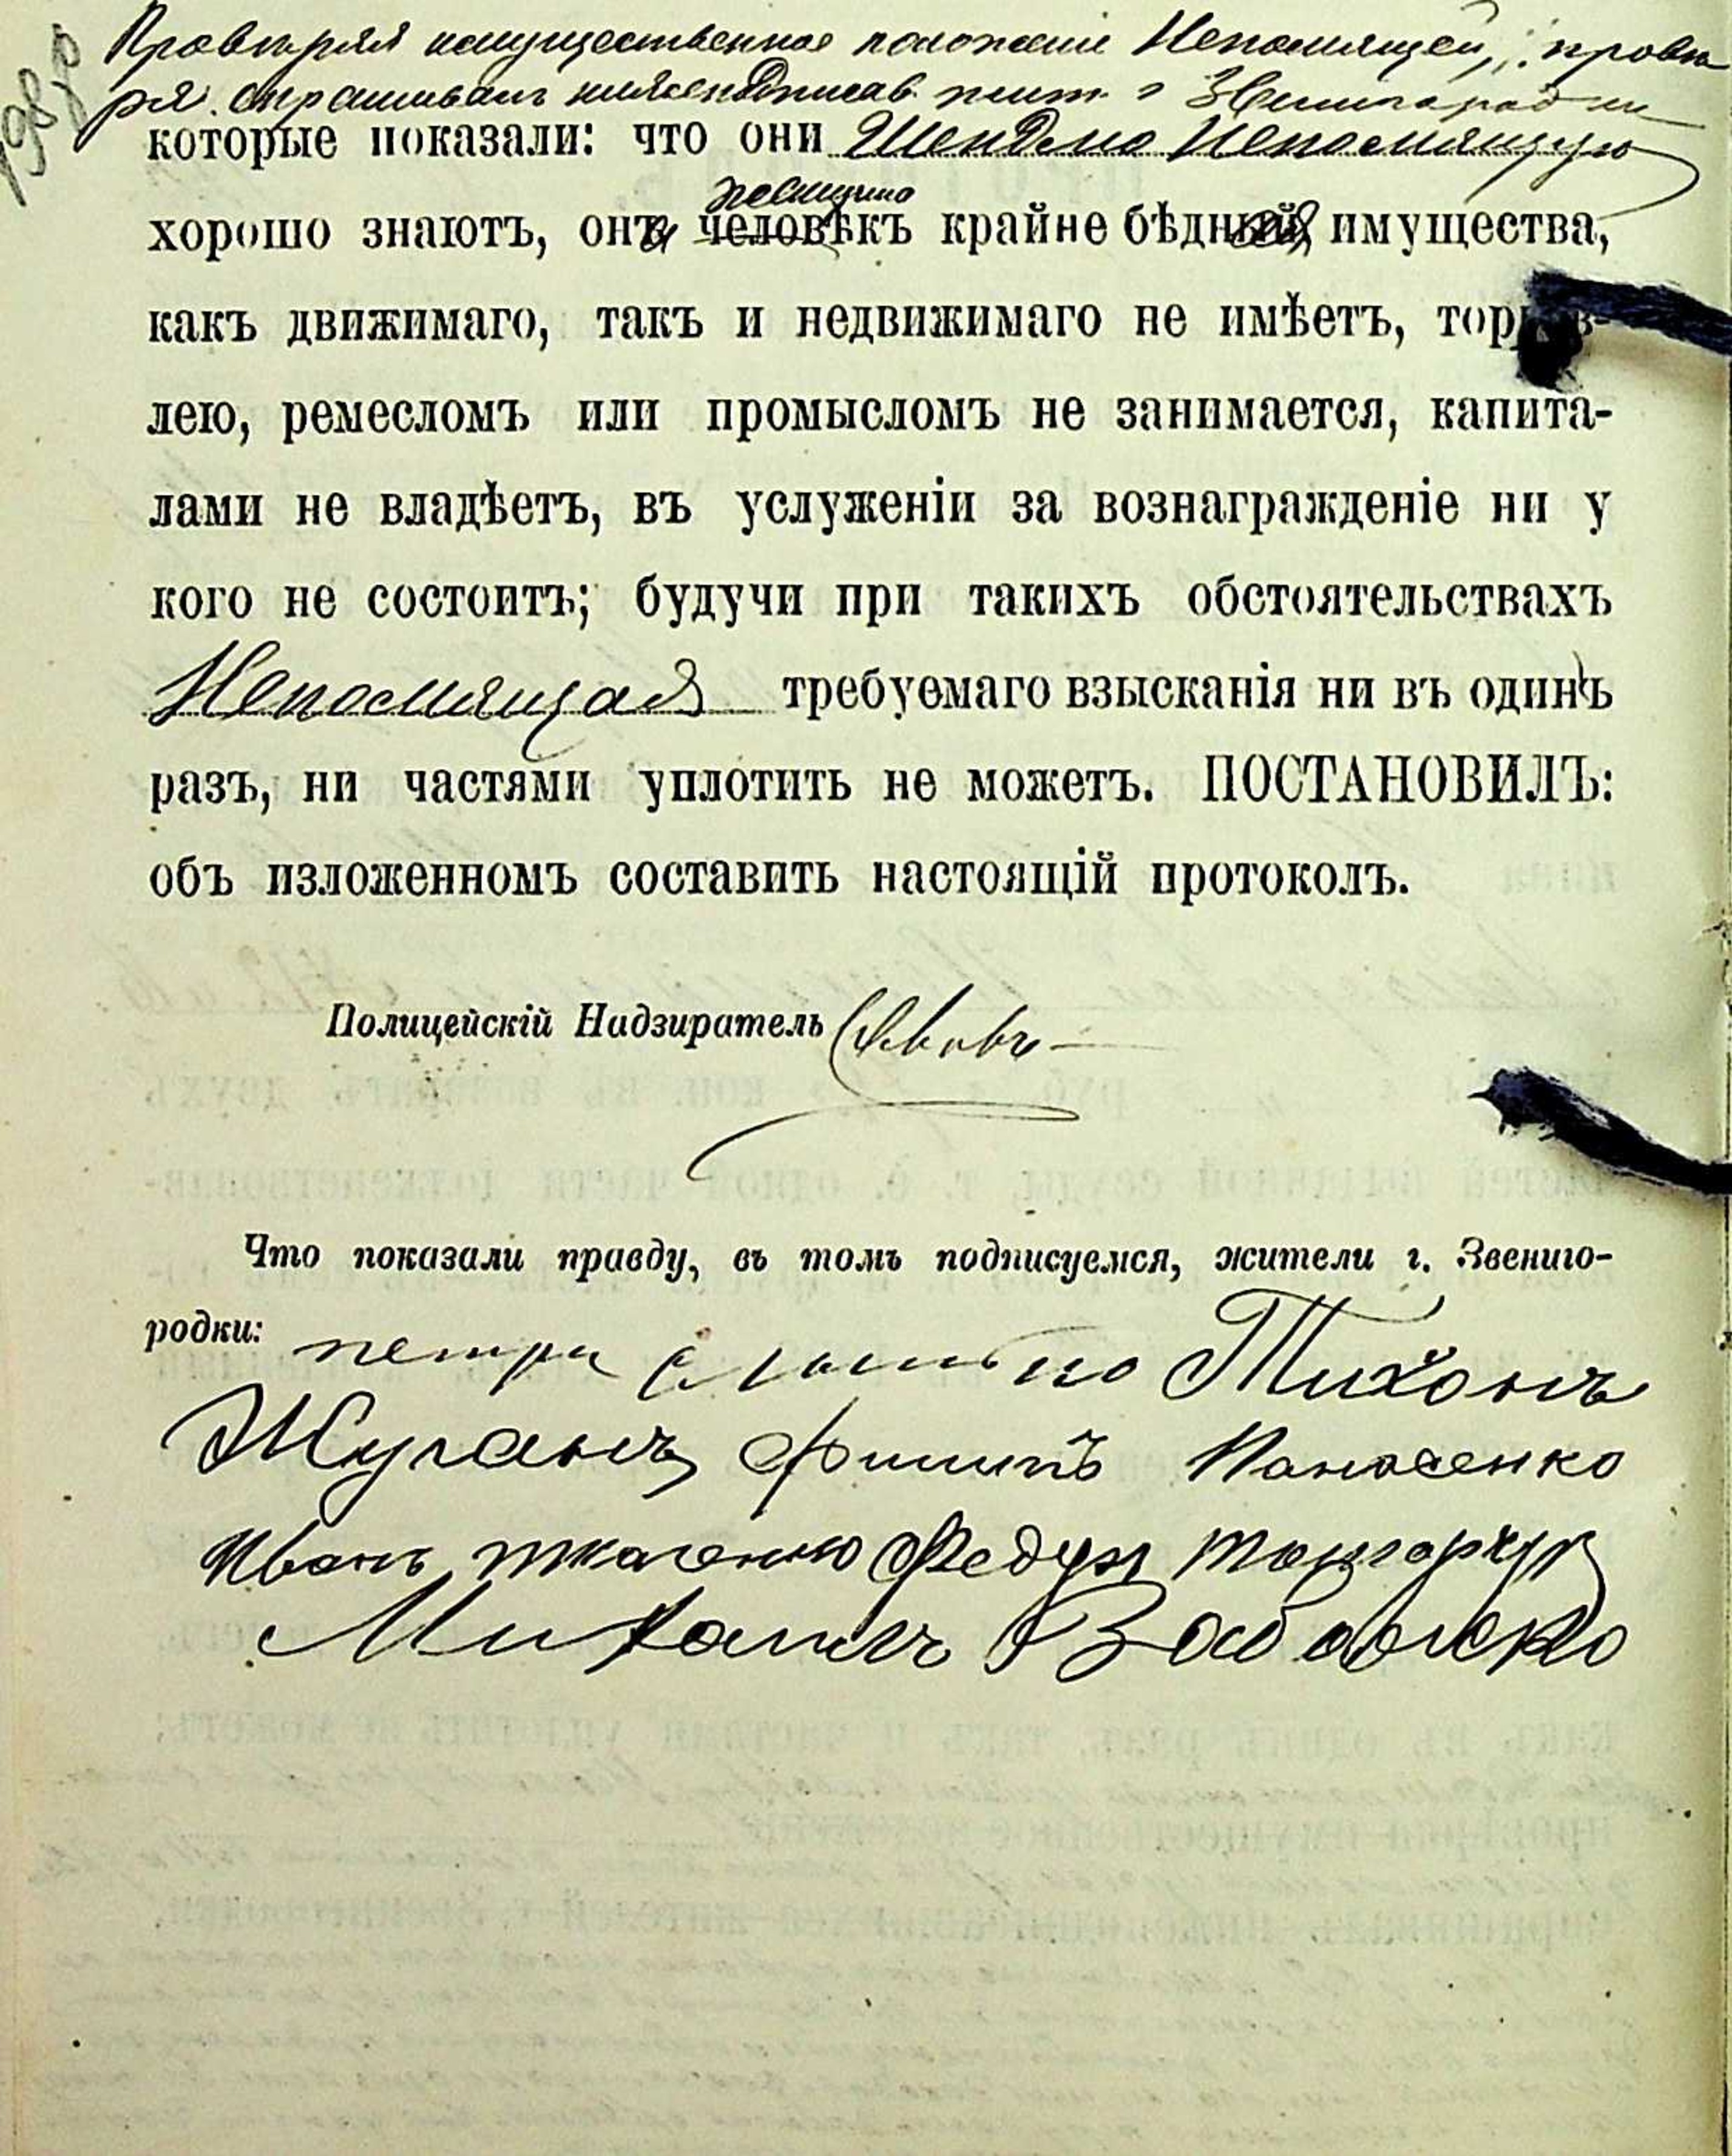 Провѣряя имущественное положеніе Непомнящей, провѣ
ряя спрашивалъ нижеподписав. жит. г. Звенигородки
которые показали: что они Шендлю Непомнящую
хорошо знаютъ, она женщина человѣкъ крайне бѣдная, имущества,
какъ движимаго, такъ и недвижимаго не имѣетъ, торгов-
лею, ремесломъ или промысломъ не занимается, капита-
лами не владѣетъ, въ услуженіи за вознагражденіе ни у
кого не состоитъ; будучи при такихъ обстоятельствахъ
Непомнящая требуемаго взысканія ни въ одинъ
разъ, ни частями уплотить не можетъ. ПОСТАНОВИЛЪ:
объ изложенномъ составить настоящій протоколъ.
Полицейскій Надзиратель
Что показали правду, въ томъ подписуемся, жители г. Звениго-
родки: петри Тихонъ
Жуганъ Филипъ Панасенко
Иванъ ткаченко Федур
Михаилъ